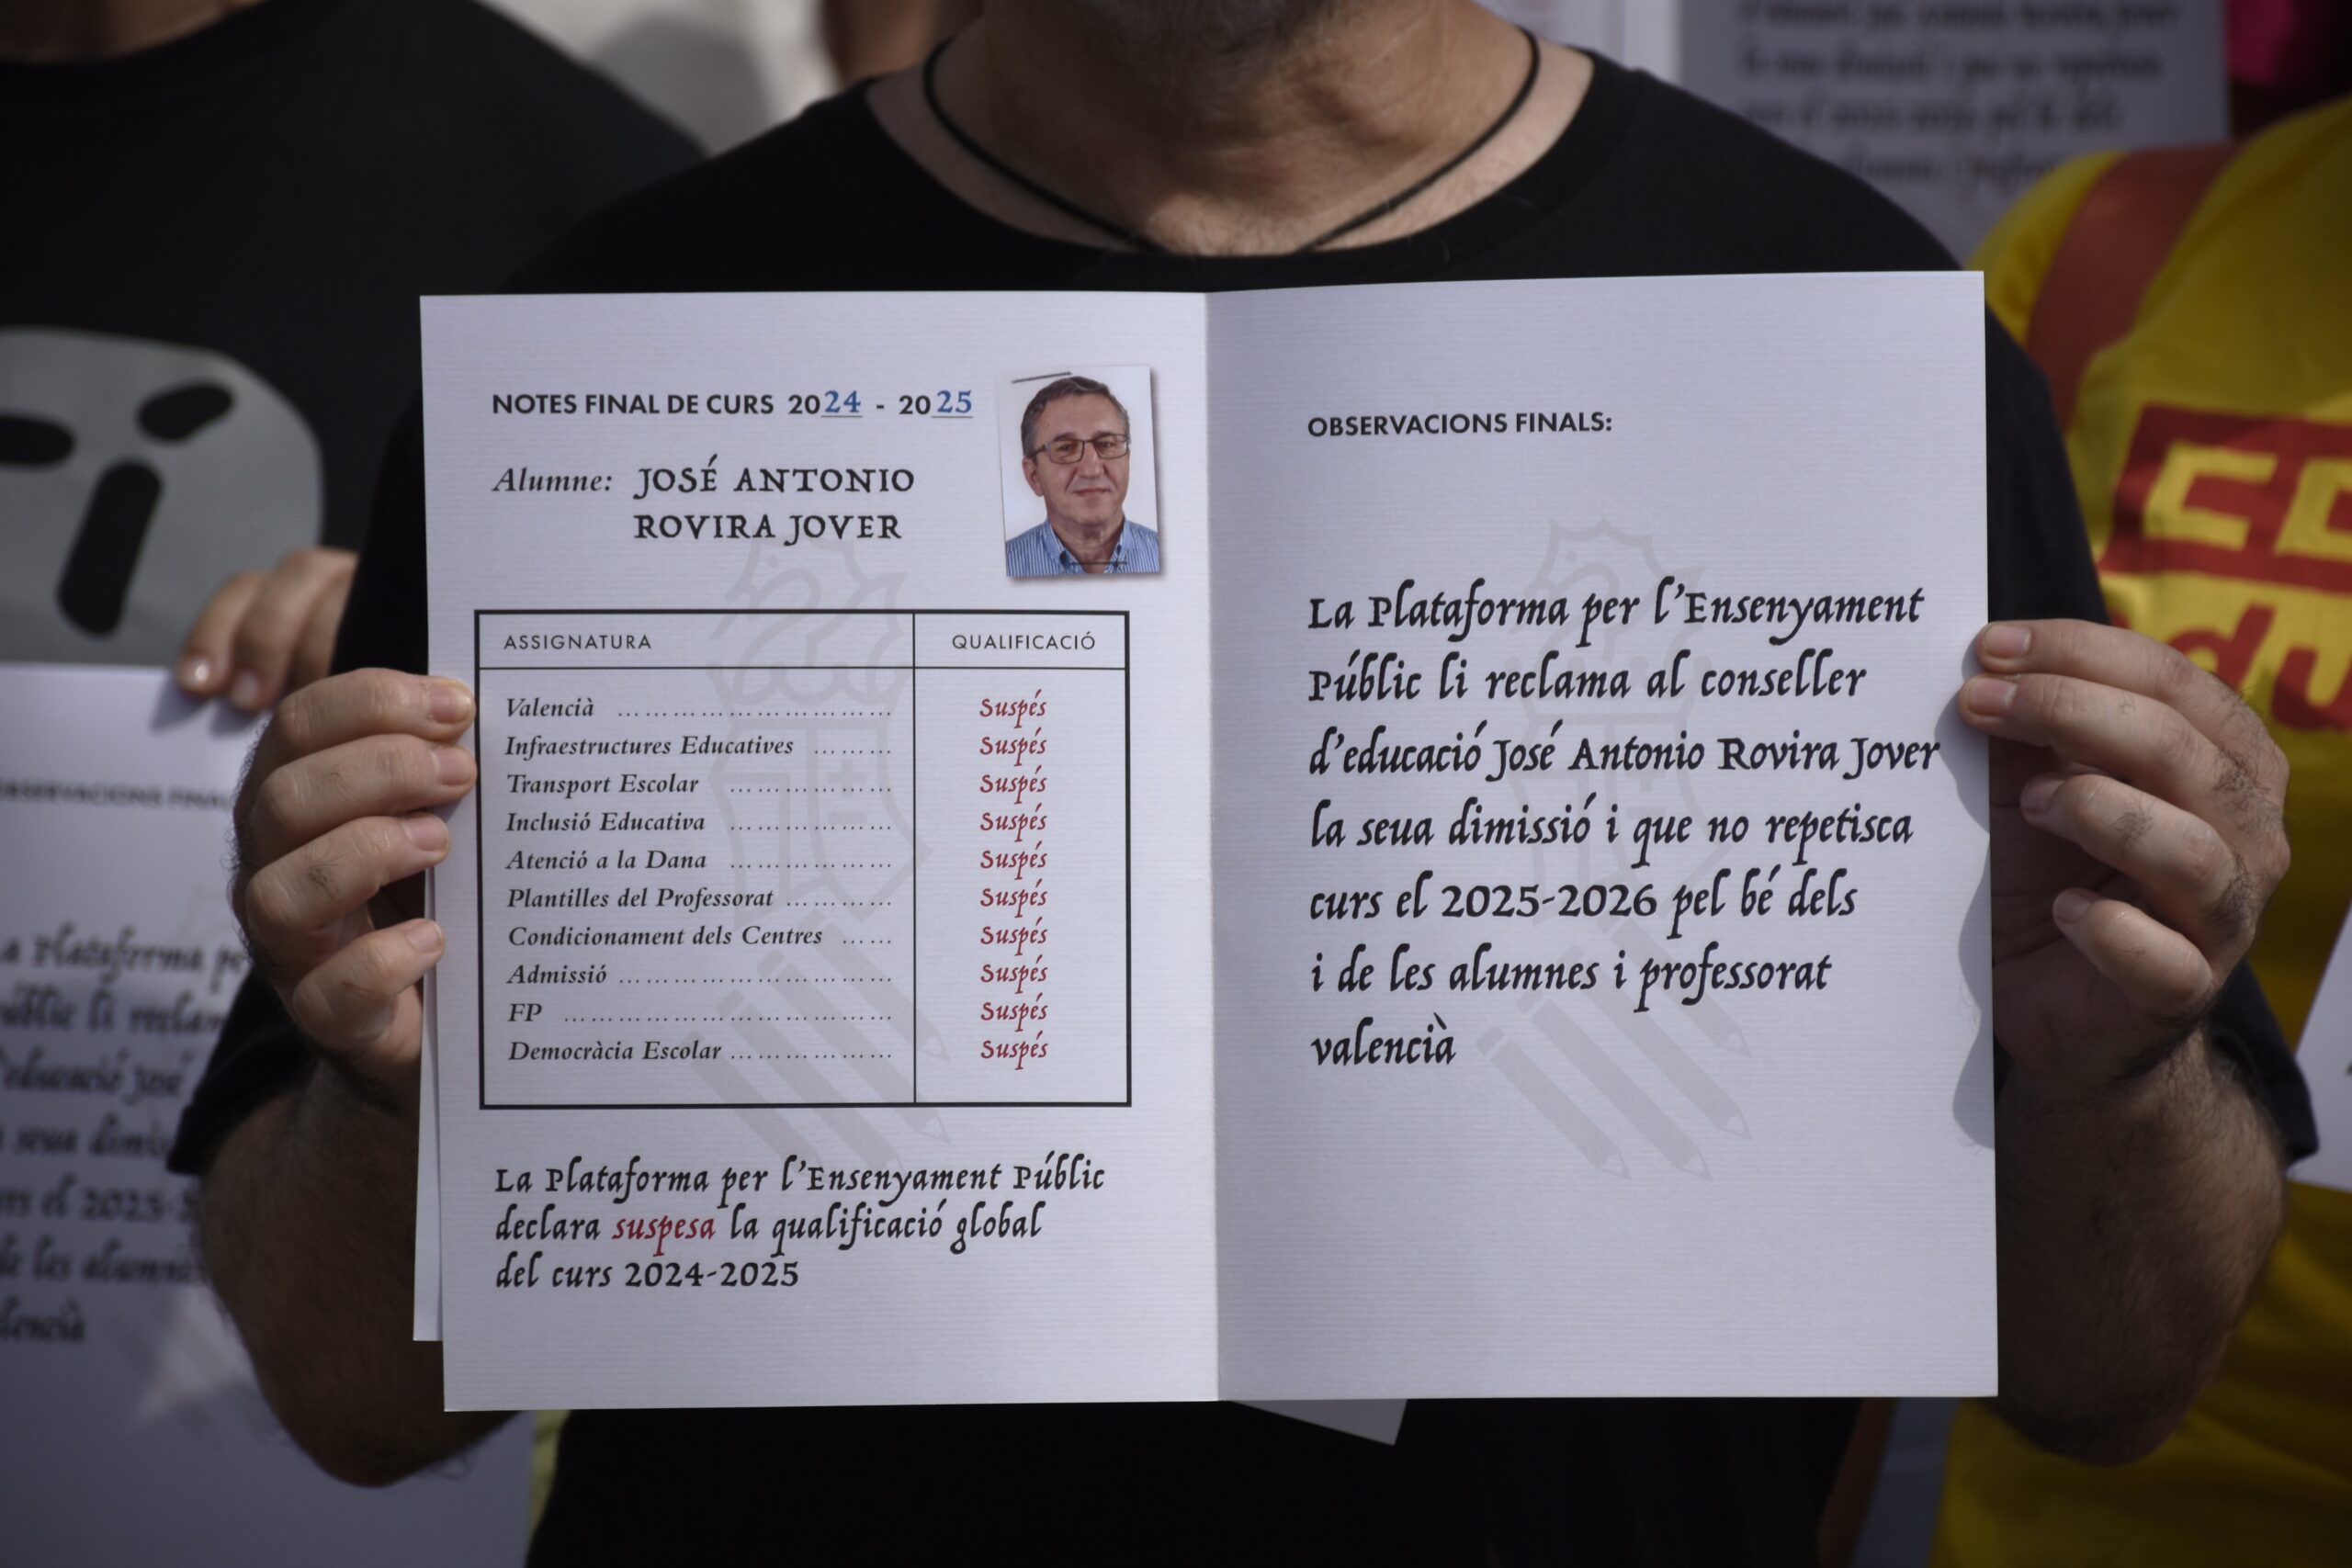 NOTES FINAL DE CURS 2024 - 2025
Alumne: JOSÉ ANTONIO
ROVIRA JOVER
ASSIGNATURA QUALIFICACIÓ
Valencià .............................. Suspés
Infraestructures Educatives ......... Suspés
Transport Escolar .................. Suspés
Inclusió Educativa .................. Suspés
Atenció a la Dana .................. Suspés
Plantilles del Professorat ............ Suspés
Condicionament dels Centres ...... Suspés
Admissió .............................. Suspés
FP .................................... Suspés
Democràcia Escolar .................. Suspés
La Plataforma per l'Ensenyament Públic
declara suspesa la qualificació global
del curs 2024-2025
OBSERVACIONS FINALS:
La Plataforma per l'Ensenyament
Públic li reclama al conseller
d'educació José Antonio Rovira Jover
la seua dimissió i que no repetisca
curs el 2025-2026 pel bé dels
i de les alumnes i professorat
valencià